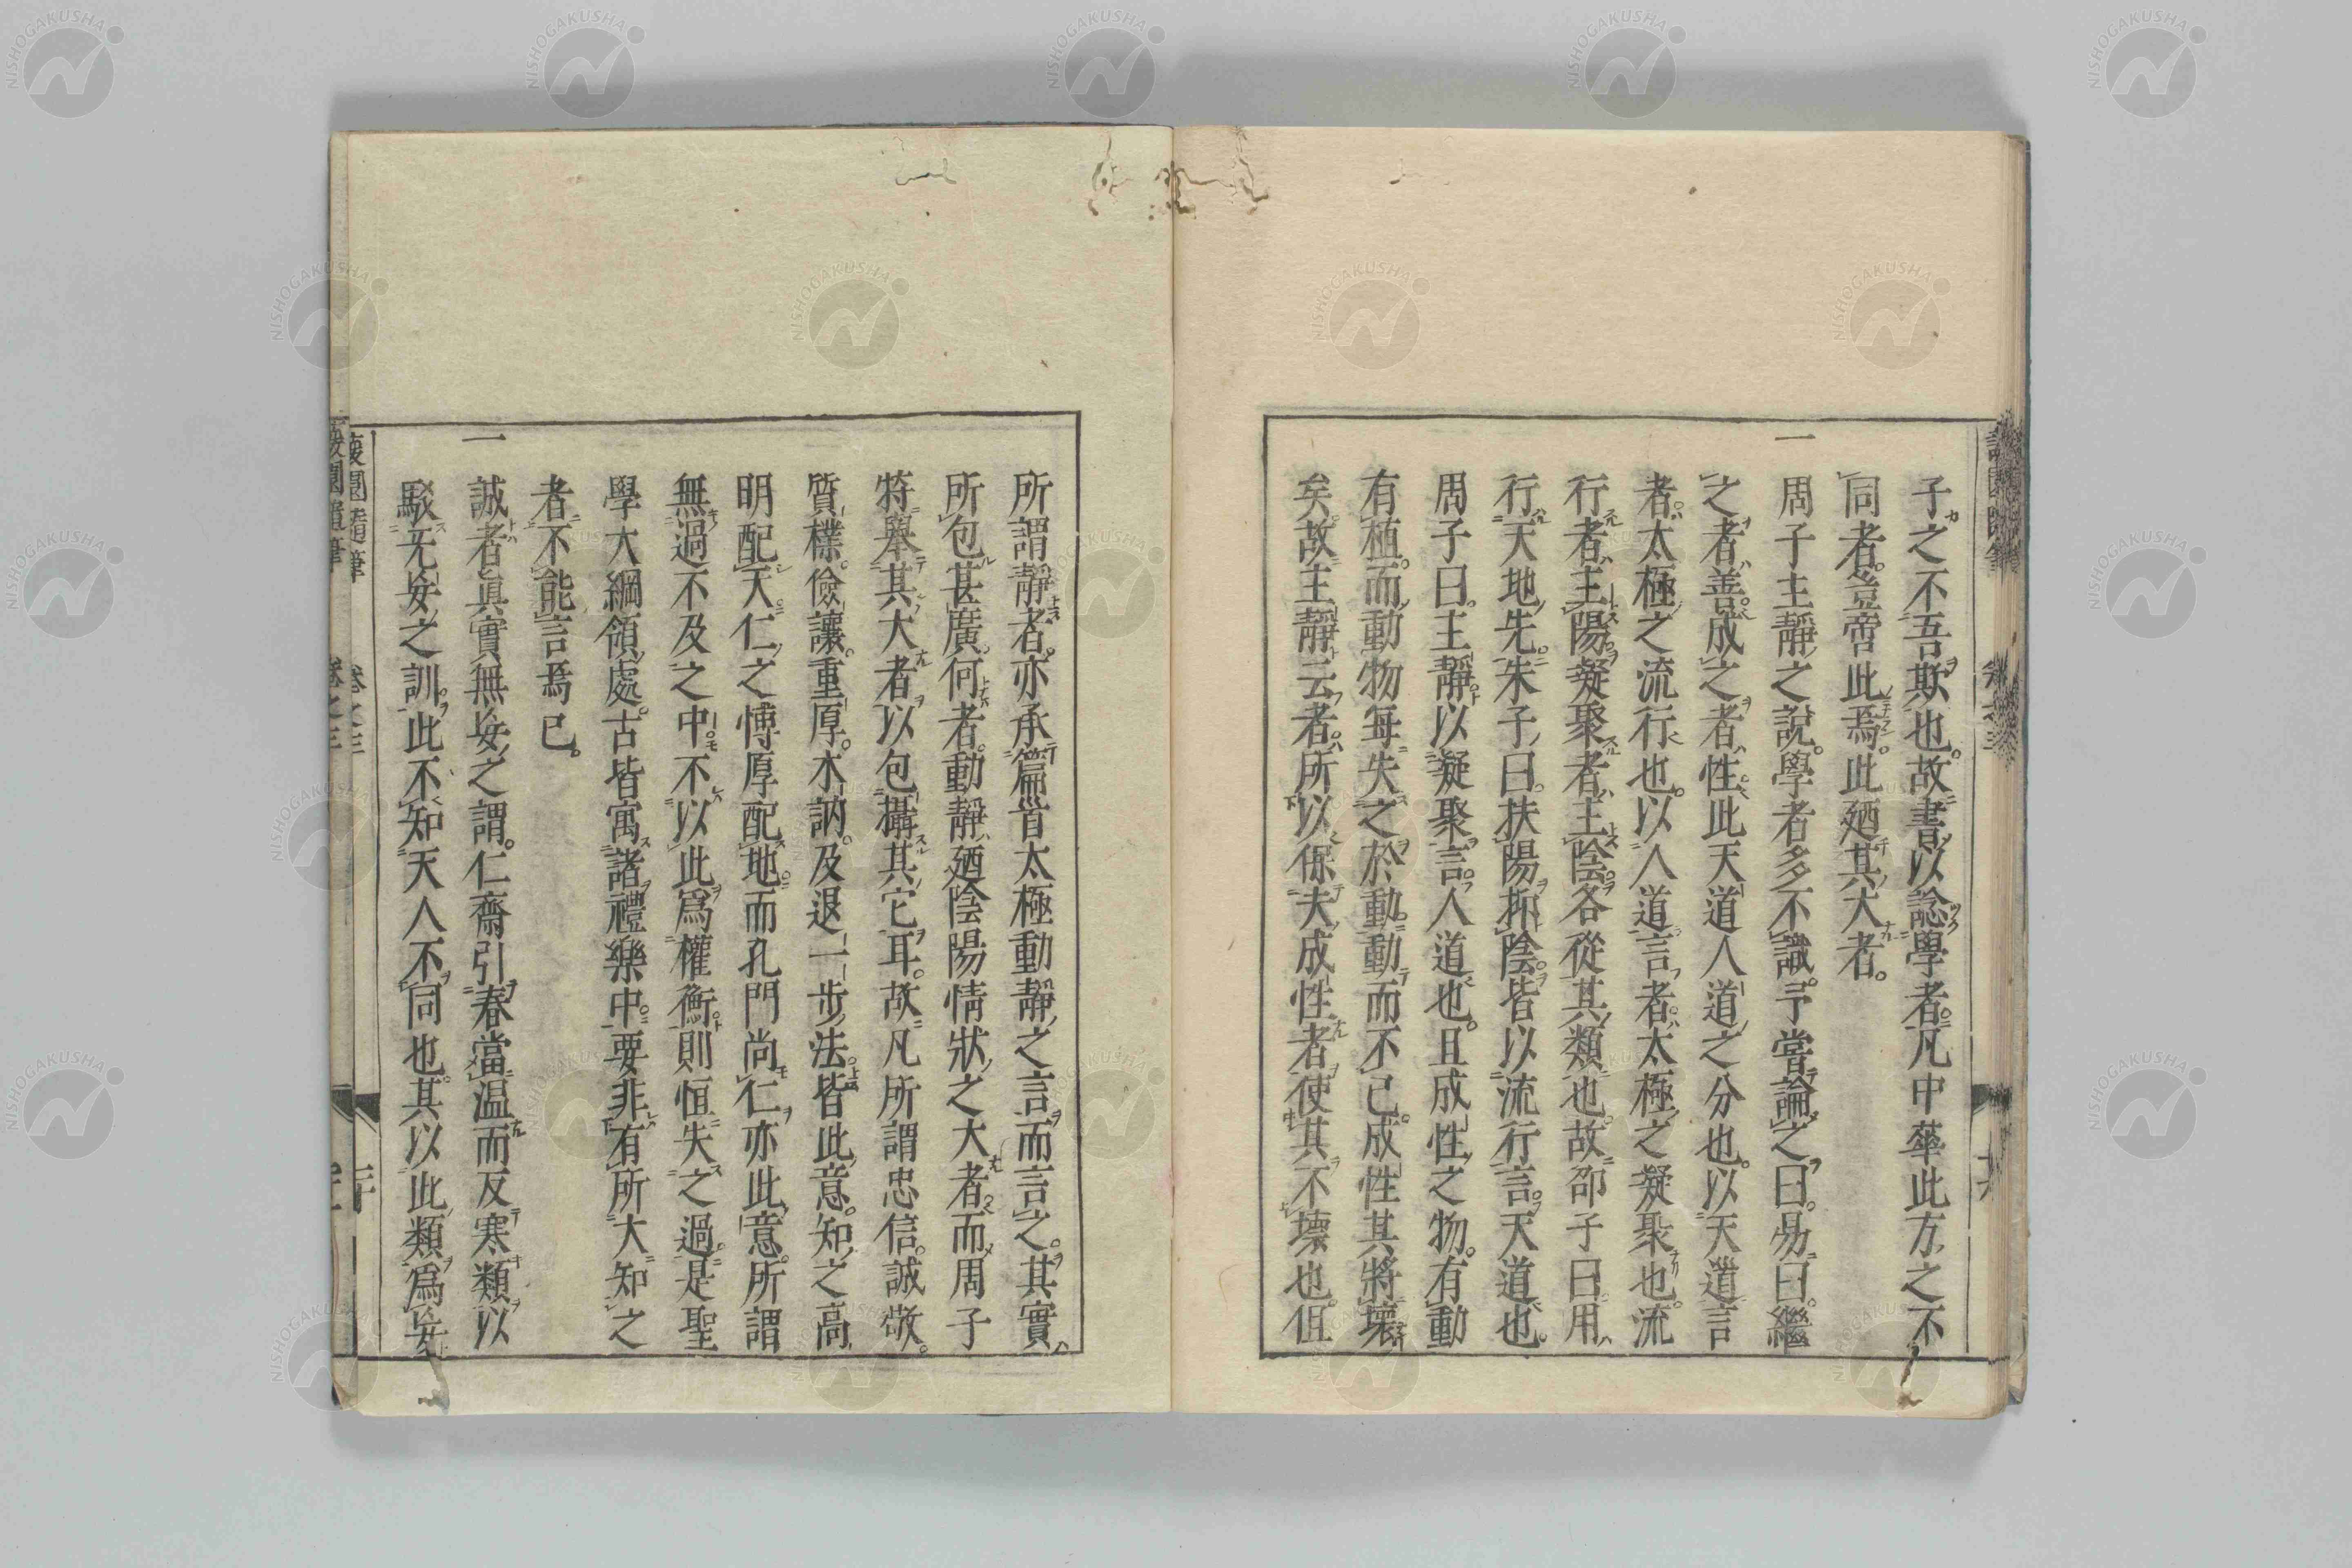 子之不吾欺也。故書以諗學者。凡中華此方之不
同者。豈啻此焉。此廼其大者。
一
周子主靜之說。學者多不識。予嘗論之曰。易曰。繼
之者善。成之者性。此天道人道之分也。以天道言
者。太極之流行也。以人道言者。太極之凝聚也。流
行者。主陽。凝聚者。主陰。各從其類也。故邵子曰。用
行天地先。朱子曰。扶陽抑陰。皆以流行言。天道也。
周子曰。主靜。以凝聚言。人道也。且成性之物。有動
有植。而動物每失之於動。動而不已。成性其將壞
矣。故主靜云者。所以保夫成性者。使其不壞也。但
所謂靜者。亦承篇首太極動靜之言而言之。其實。
所包甚廣。何者。動靜廼陰陽情狀之大者。而周子
特舉其大者。以包攝其它耳。故凡所謂忠信。誠敬。
質樸。儉讓。重厚。木訥。及退一步法。皆此意。知之高
明配天。仁之博厚配地。而孔門尚仁。亦此意。所謂
無過不及之中。不以此爲權衡。則恒失之過。是聖
學大綱領處。古皆寓諸禮樂中。要非有所大知之
者。不能言焉已。
一
誠者眞實無妄之謂。仁齋引春當温而反寒類。以
駁无妄之訓。此不知天人不同也。其以此類爲妄
蘐園隨筆
卷之三
NISHOGAKUSHA